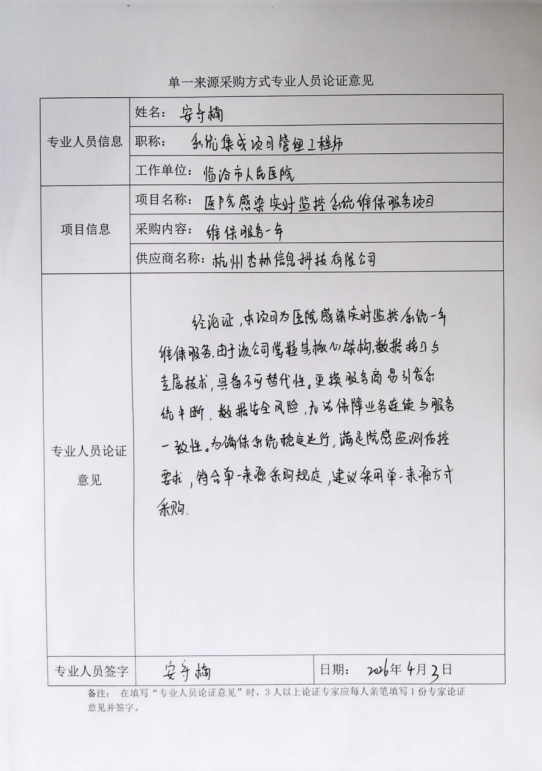 单一来源采购方式专业人员论证意见
专业人员信息
姓名： 安守楠
职称： 系统集成项目管理工程师
工作单位： 临汾市人民医院
项目信息
项目名称： 医院感染实时监控系统维保服务项目
采购内容： 维保服务一年
供应商名称： 杭州杏林信息科技有限公司
专业人员论证
意见
经论证，本项目为医院感染实时监控系统一年
维保服务。由于该公司掌握其核心架构、数据接口与
专属技术，具备不可替代性。更换服务商易引发系
统中断、数据安全风险，无法保障业务连续与服务
一致性。为确保系统稳定运行，满足院感监测防控
要求，符合单一来源采购规定，建议采用单一来源方式
采购.
专业人员签字 安守楠 日期： 2026年4月3日
备注： 在填写“专业人员论证意见”时，3人以上论证专家应每人亲笔填写1份专家论证
意见并签字。